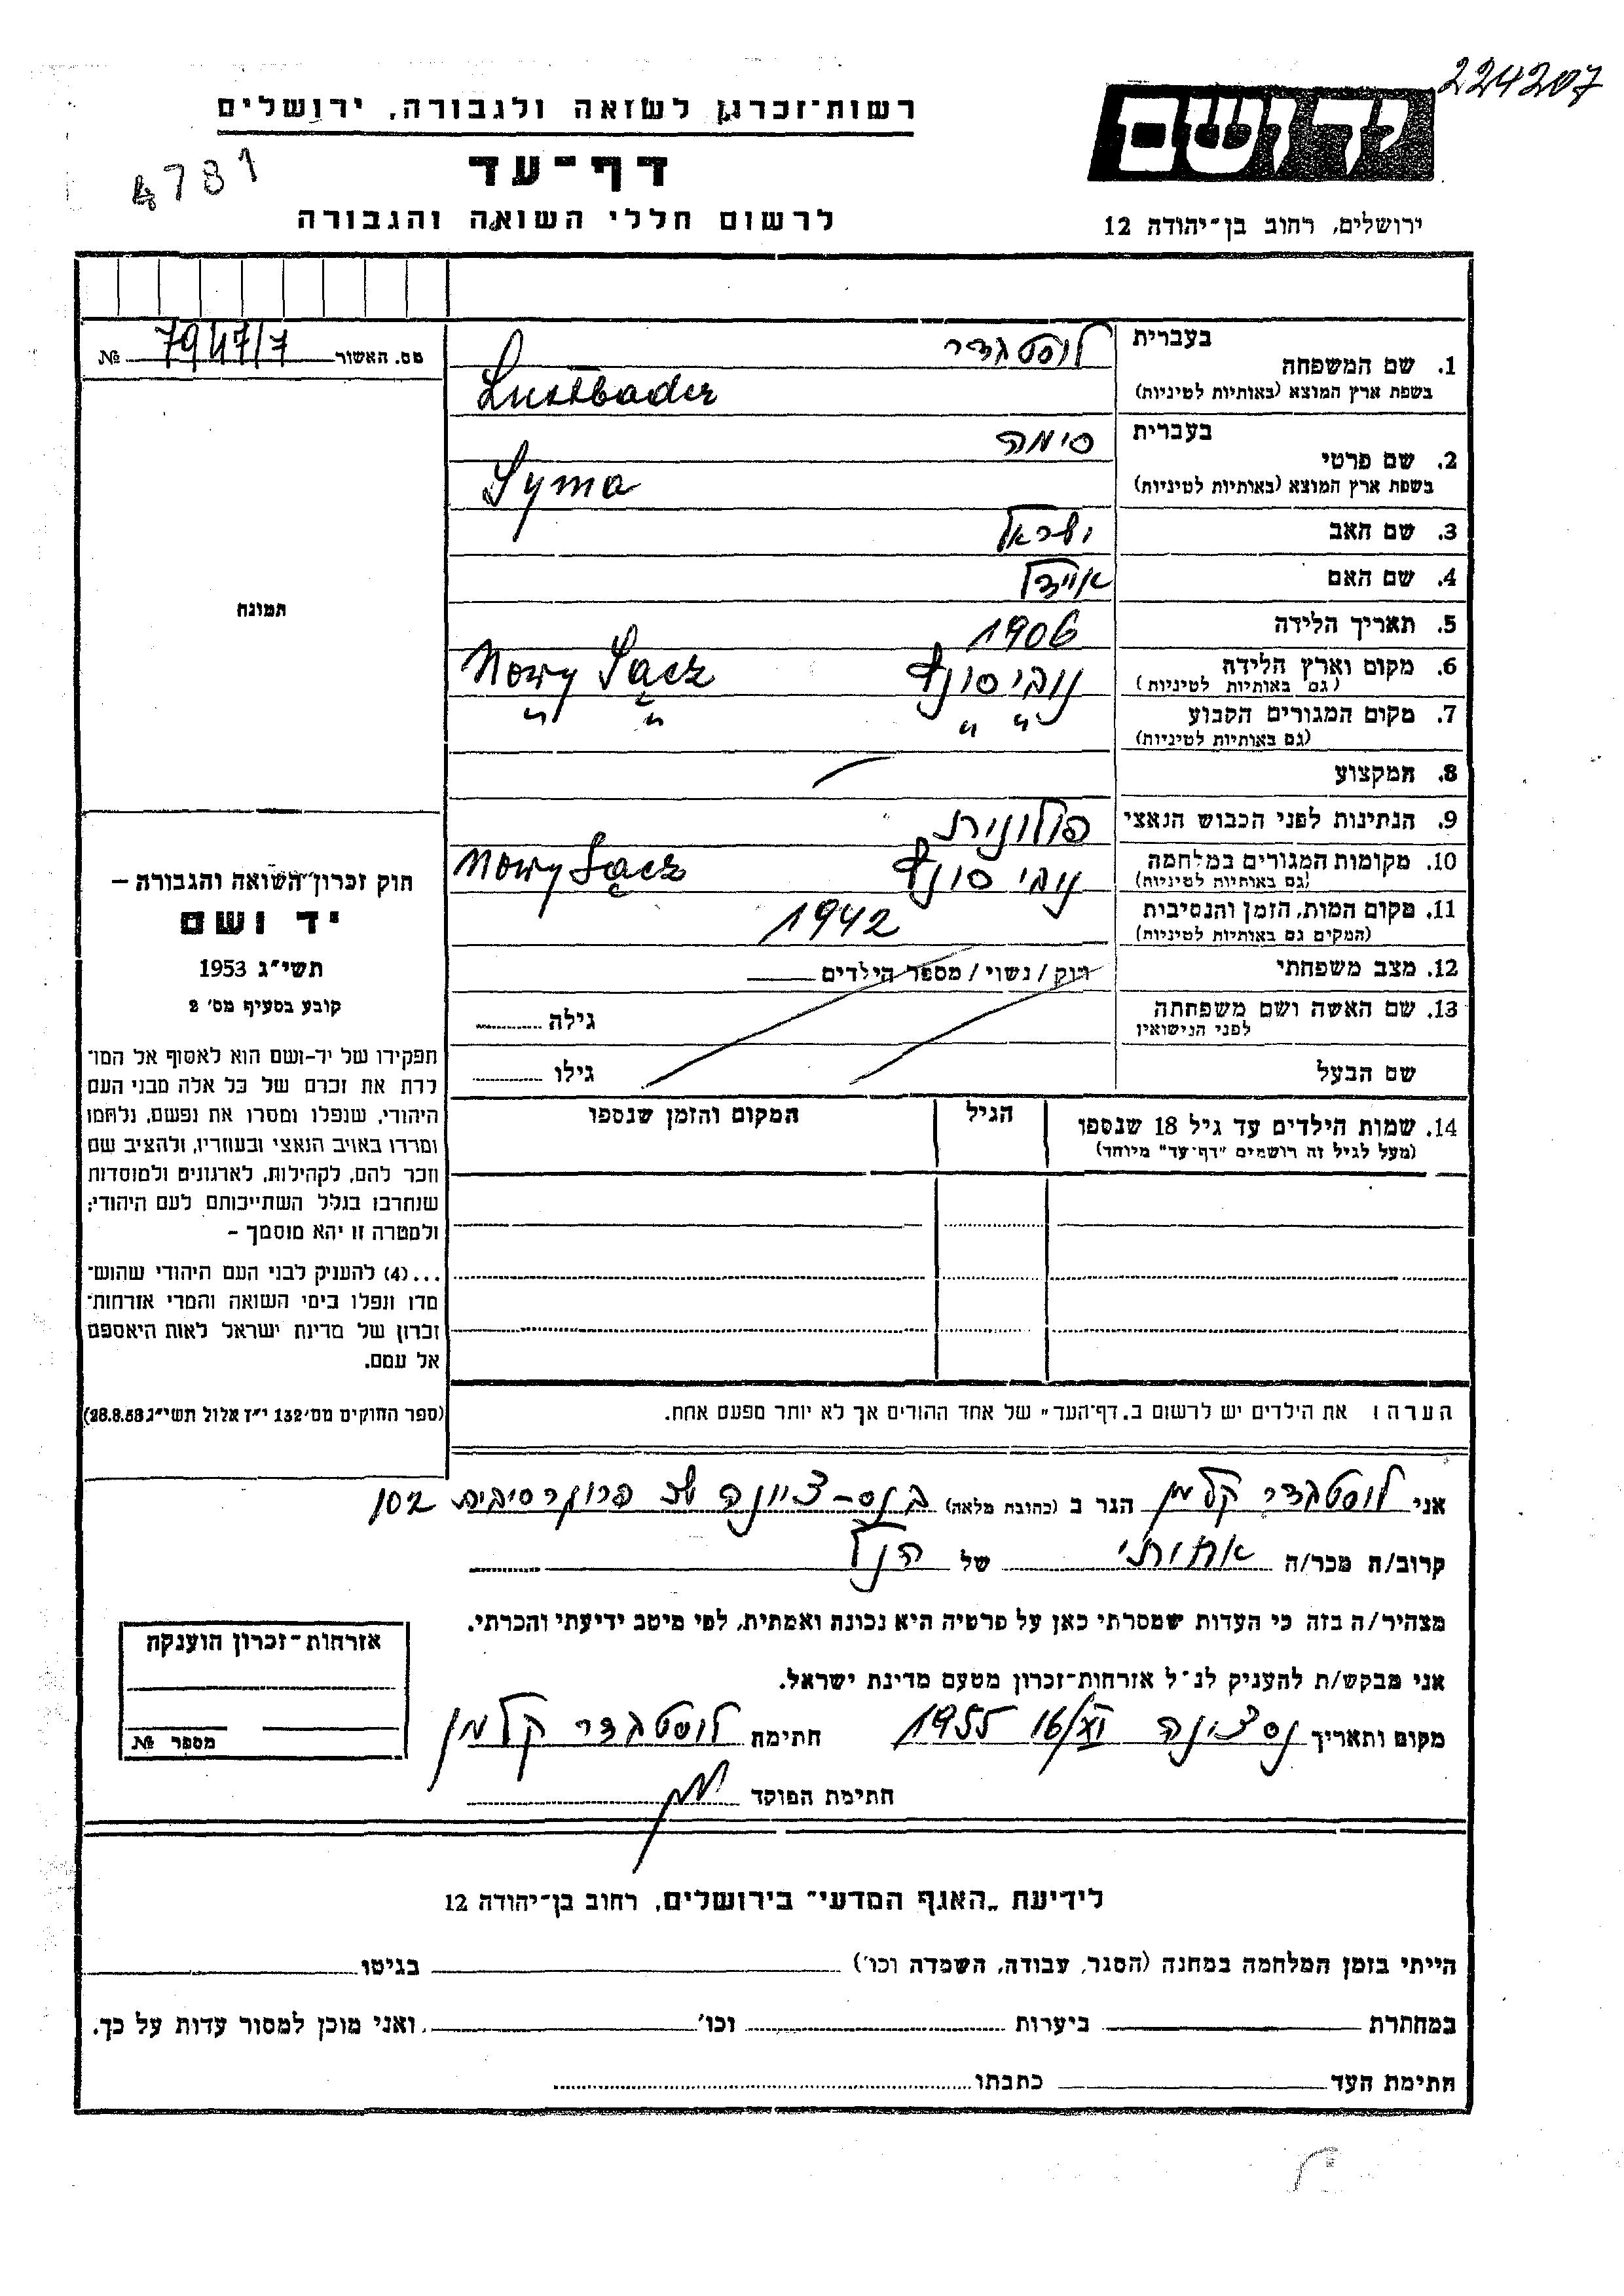 224207
יד ושם
ירושלים, רחוב בן־יהודה 12
רשות־זכרון לשואה ולגבורה, ירושלים
דף־עד
לרשום חללי השואה והגבורה
4781
מס. האשור 7947/7 №
תמונה
1. שם המשפחה בעברית לוסטבדר
בשפת ארץ המוצא (באותיות לטיניות) Lustbader
2. שם פרטי בעברית סימה
בשפת ארץ המוצא (באותיות לטיניות) Syma
3. שם האב ישראל
4. שם האם איידל
5. תאריך הלידה 1906
6. מקום וארץ הלידה נובי סונץ Nowy Sącz
(גם באותיות לטיניות)
7. מקום המגורים הקבוע " " " "
(גם באותיות לטיניות)
8. המקצוע
9. הנתינות לפני הכבוש הנאצי פולונית
10. מקומות המגורים במלחמה נובי סונץ Nowy Sącz
(גם באותיות לטיניות)
11. מקום המות, הזמן והנסיבות 1942
(המקום גם באותיות לטיניות)
12. מצב משפחתי רווק / נשוי / מספר הילדים
13. שם האשה ושם משפחתה גילה
לפני הנישואין
שם הבעל גילו
14. שמות הילדים עד גיל 18 שנספו הגיל המקום והזמן שנספו
(מעל לגיל זה רושמים "דף־עד" מיוחד)
חוק זכרון השואה והגבורה –
יד ושם
תשי"ג 1953
קובע בסעיף מס' 2
תפקידו של יד-ושם הוא לאסוף אל המו־
לדת את זכרם של כל אלה מבני העם
היהודי, שנפלו ומסרו את נפשם, נלחמו
ומרדו באויב הנאצי ובעוזריו, ולהציב שם
וזכר להם, לקהילות, לארגונים ולמוסדות
שנחרבו בגלל השתייכותם לעם היהודי;
ולמטרה זו יהא מוסמך –
...(4) להעניק לבני העם היהודי שהוש־
מדו ונפלו בימי השואה והמרי אזרחות־
זכרון של מדינת ישראל לאות היאספם
אל עמם.
(ספר החוקים מס' 132 י"ז אלול תשי"ג 28.8.53)
הערה: את הילדים יש לרשום ב„דף־העד" של אחד ההורים אך לא יותר מפעם אחת.
אני לוסטבדר קלמן הגר ב (כתובת מלאה) בנס-ציונה 102
קרוב/ה מכר/ה אחותי של הנ"ל
מצהיר/ה בזה כי העדות שמסרתי כאן על פרטיה היא נכונה ואמתית, לפי מיטב ידיעתי והכרתי.
אני מבקש/ת להעניק לנ"ל אזרחות־זכרון מטעם מדינת ישראל.
מקום ותאריך נס ציונה 16/XI 1955 חתימה לוסטבדר קלמן
חתימת הפוקד
אזרחות־זכרון הוענקה
מספר №
לידיעת „האגף המדעי" בירושלים, רחוב בן־יהודה 12
הייתי בזמן המלחמה במחנה (הסגר, עבודה, השמדה וכו') בגיטו
במחתרת ביערות וכו' ואני מוכן למסור עדות על כך.
חתימת העד כתבתו